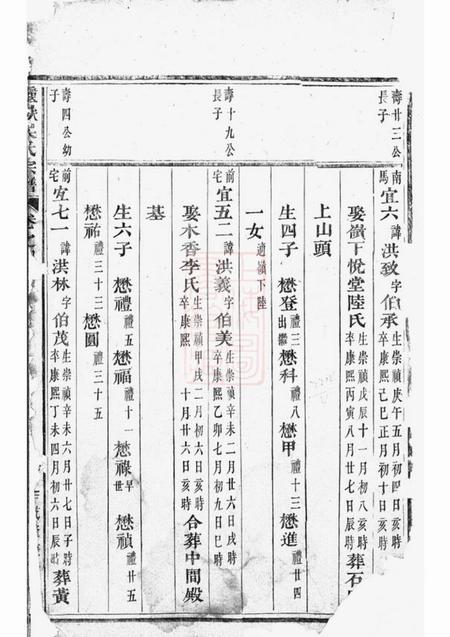 壽廿三公
長子
南馬宜六諱洪致字伯承生崇禎庚午五月初四日
卒康熙己巳正月初十日亥時
娶嶺下悅堂陸氏生崇禎戊辰十一月初八亥時
卒康熙丙寅八月廿七日辰時葬石
上山頭
生四子 懋登禮三出繼懋科禮八懋甲禮十三懋進禮廿四
一女適嶺下陸
壽十九公
長子
前宅宜五二諱洪義字伯美生崇禎辛未二月廿六日戌時
卒康熙乙卯七月初九日巳時
娶木香李氏生崇禎甲戌二月初六日亥時
卒康熙 十月廿六日亥時合葬中間殿
墓
生六子 懋禮禮五懋福禮十一懋祿早世懋禎禮廿五
懋祐禮三十三懋圓禮三十五
壽四公幼
子
前宅宜七一諱洪林字伯茂生崇禎辛未六月廿七日子時
卒康熙丁未四月初六日辰時葬黃
氏宗譜